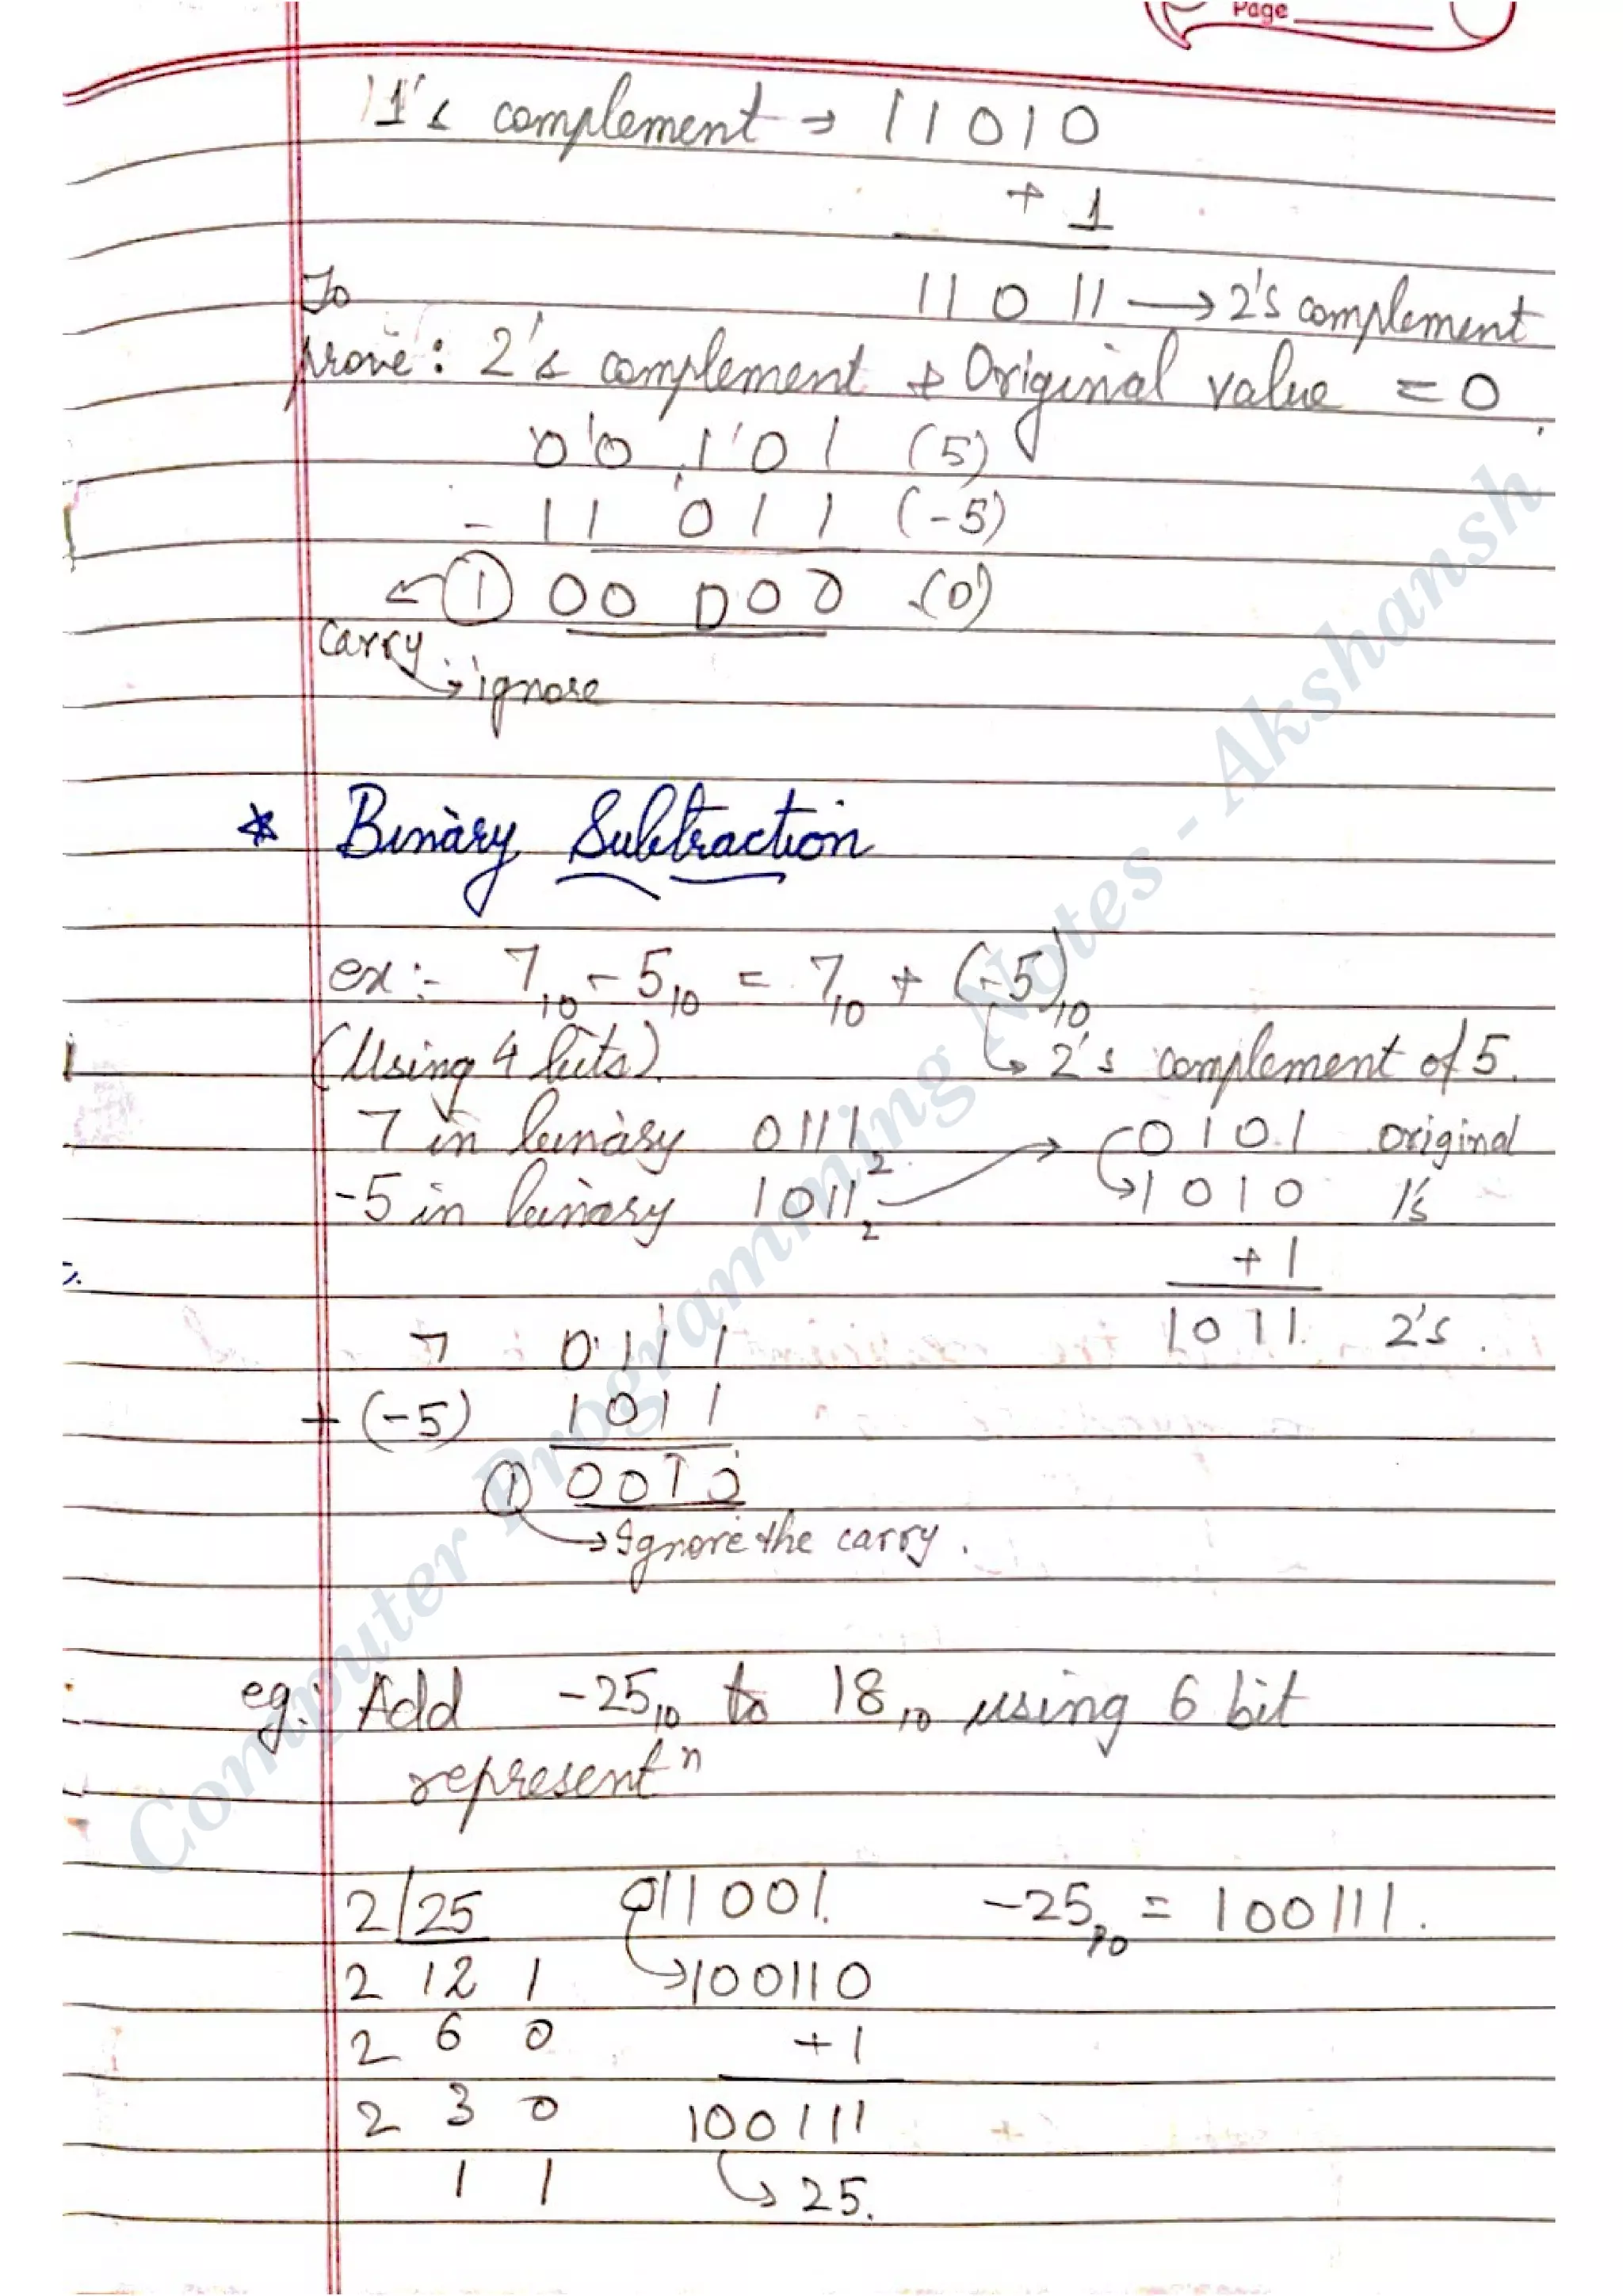 Page
1's complement → 11010
+ 1
11011 → 2's complement
To
prove: 2's complement + Original value = 0
00101 (5)
- 11011 (-5)
← 1 00000 (0)
carry → ignore
* Binary Subtraction
ex:- 7₁₀ - 5₁₀ = 7₁₀ + (-5)₁₀
(Using 4 bits) ↳ 2's complement of 5.
7 in binary 0111₂ → 0101 original
-5 in binary 1011₂ ↳ 1010 1's
+ 1
1011 2's.
7 0111
+ (-5) 1011
1 0010
→ Ignore the carry.
eg:. Add -25₁₀ to 18₁₀ using 6 bit
representⁿ
2 25 011001. -25₁₀ = 100111.
2 12 1 ↳ 100110
2 6 0 + 1
2 3 0 100111
1 1 ↳ 25.
Computer Programming Notes - Akshansh